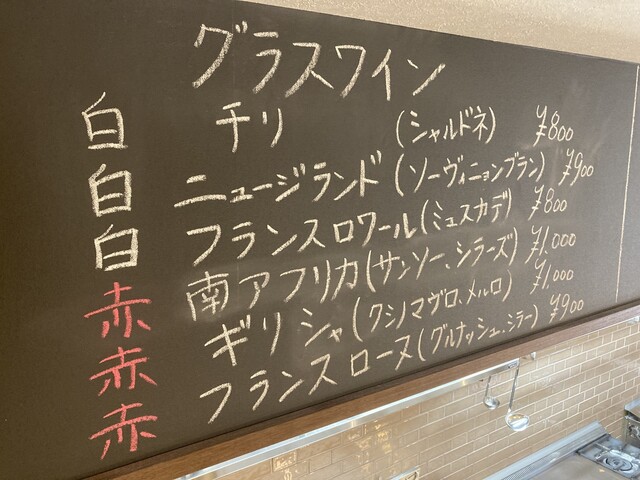 グラスワイン
白 チリ (シャルドネ) ¥800
白 ニュージランド (ソーヴィニョンブラン) ¥900
白 フランスロワール (ミュスカデ) ¥800
赤 南アフリカ (サンソー、シラーズ) ¥1,000
赤 ギリシャ (クシノマヴロ、メルロ) ¥1,000
赤 フランスローヌ (グルナッシュ、シラー) ¥900